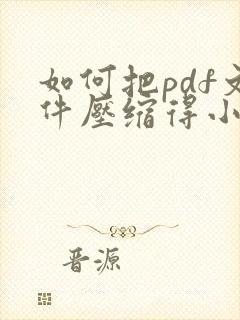 如何把pdf文
件壓缩得小
晋源